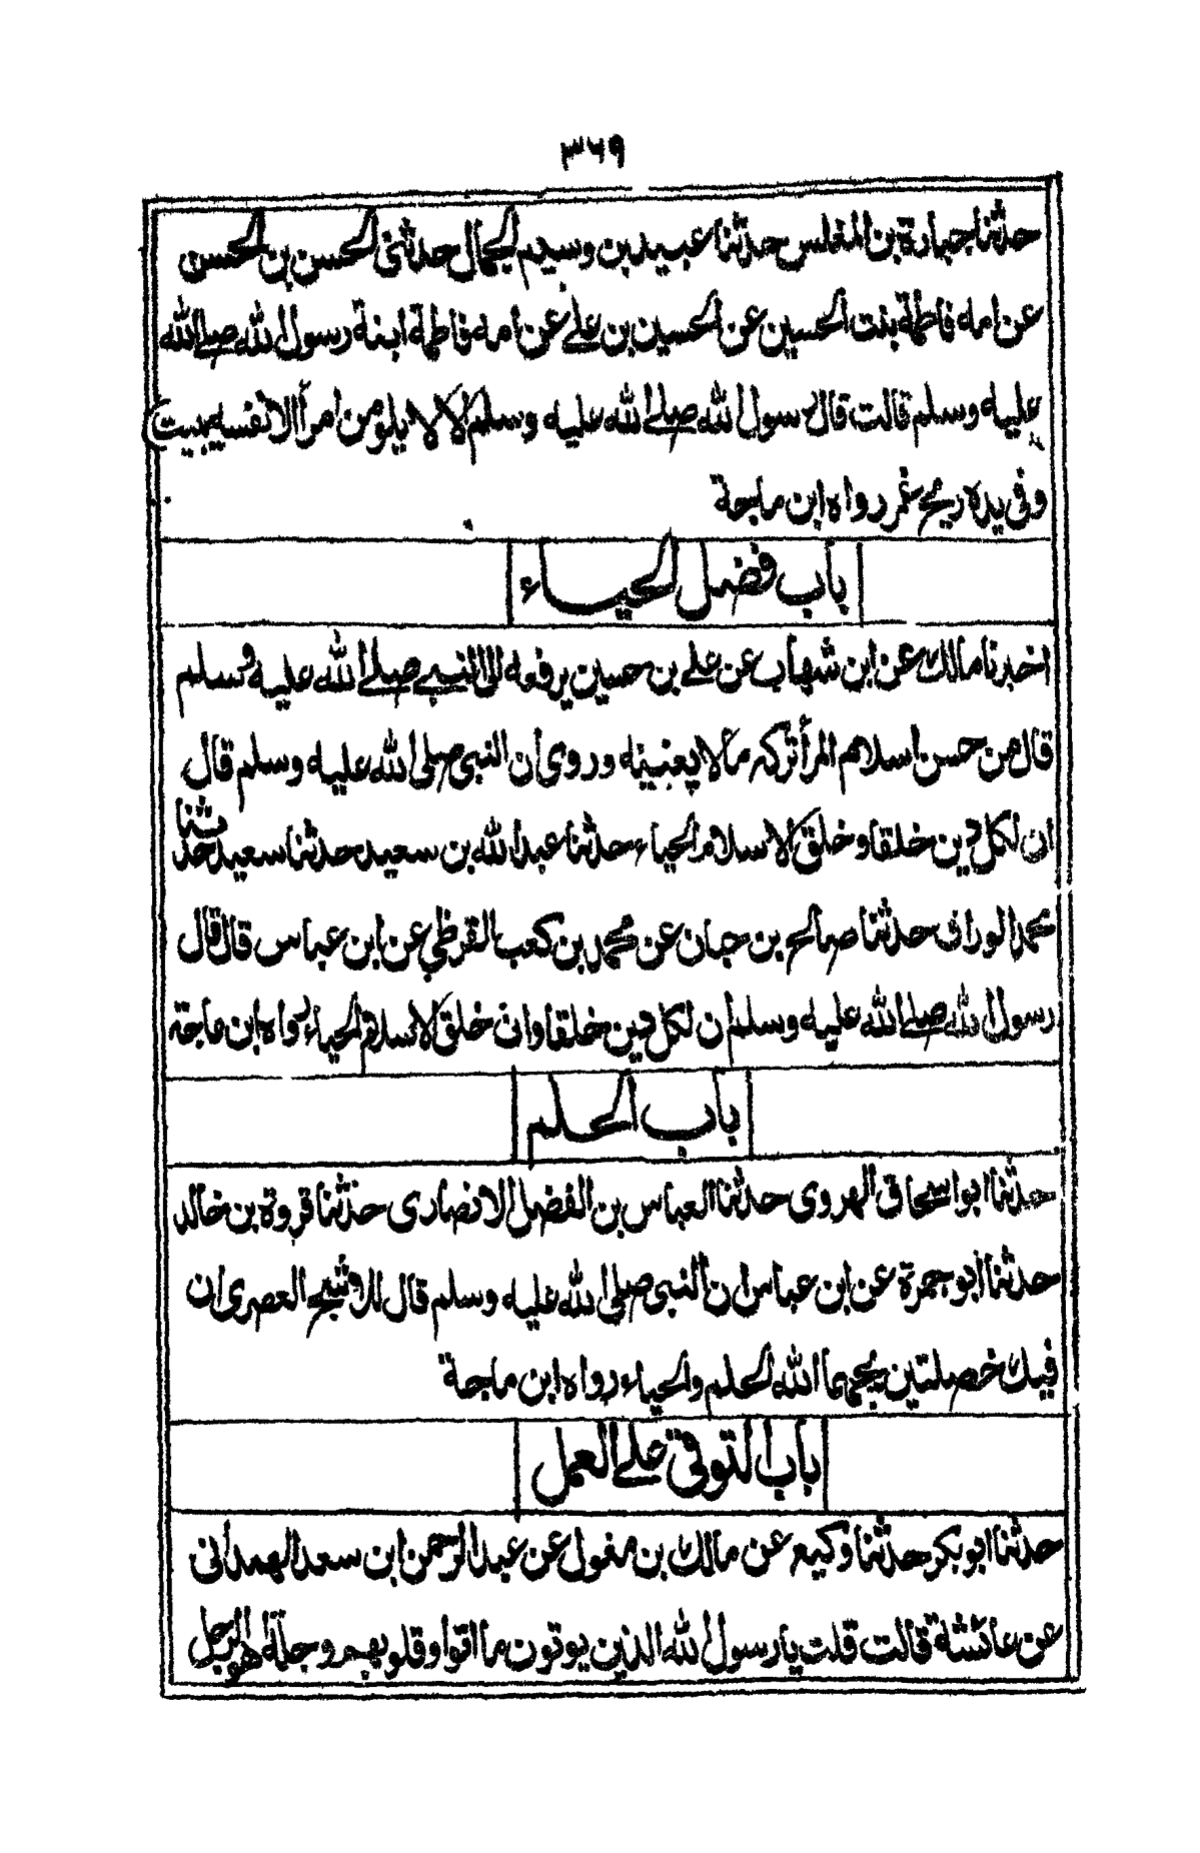 ٣٦٩
حدثنا جبارة بن المغلس حدثنا عبيد بن وسيم الجمال حدثنى الحسن بن الحسن
عن امه فاطمة بنت الحسين عن الحسين بن علے عن امه فاطمة ابنة رسول الله صلے الله
عليه وسلم قالت قال رسول الله صلے الله عليه وسلم الا لا يلومن امرأ الا نفسه يبيت
وفى يده ريح غمر رواه ابن ماجة
باب فضل الحياء
اخبرنا مالك عن ابن شهاب عن علے بن حسين يرفعه الى النبے صلے الله عليه وسلم
قال من حسن اسلام المرأ تركه مالا يعنينه وروى ان النبى صلى الله عليه وسلم قال
ان لكل دين خلقا وخلق الاسلام الحياء حدثنا عبد الله بن سعيد حدثنا سعيد حدثنا
محمد الوراق حدثنا صالح بن حبان عن محمد بن كعب القرظي عن ابن عباس قال قال
رسول الله صلے الله عليه وسلم ان لكل دين خلقا وان خلق الاسلام الحياء رواه ابن ماجة
باب الحلم
حدثنا ابو اسحاق الهروى حدثنا العباس بن الفضل الانصارى حدثنا قروة بن خالد
حدثنا ابو جمرة عن ابن عباس ان النبى صلى الله عليه وسلم قال للاشج العصرى ان
فيك خصلتين يحبهما الله الحلم والحياء رواه ابن ماجة
باب التوقى علے العمل
حدثنا ابو بكر حدثنا وكيع عن مالك بن مغول عن عبد الرحمن ابن سعد الهمدانى
عن عائشة قالت قلت يا رسول الله الذين يوتون ما اتوا وقلوبهم وجلة اهو الرجل